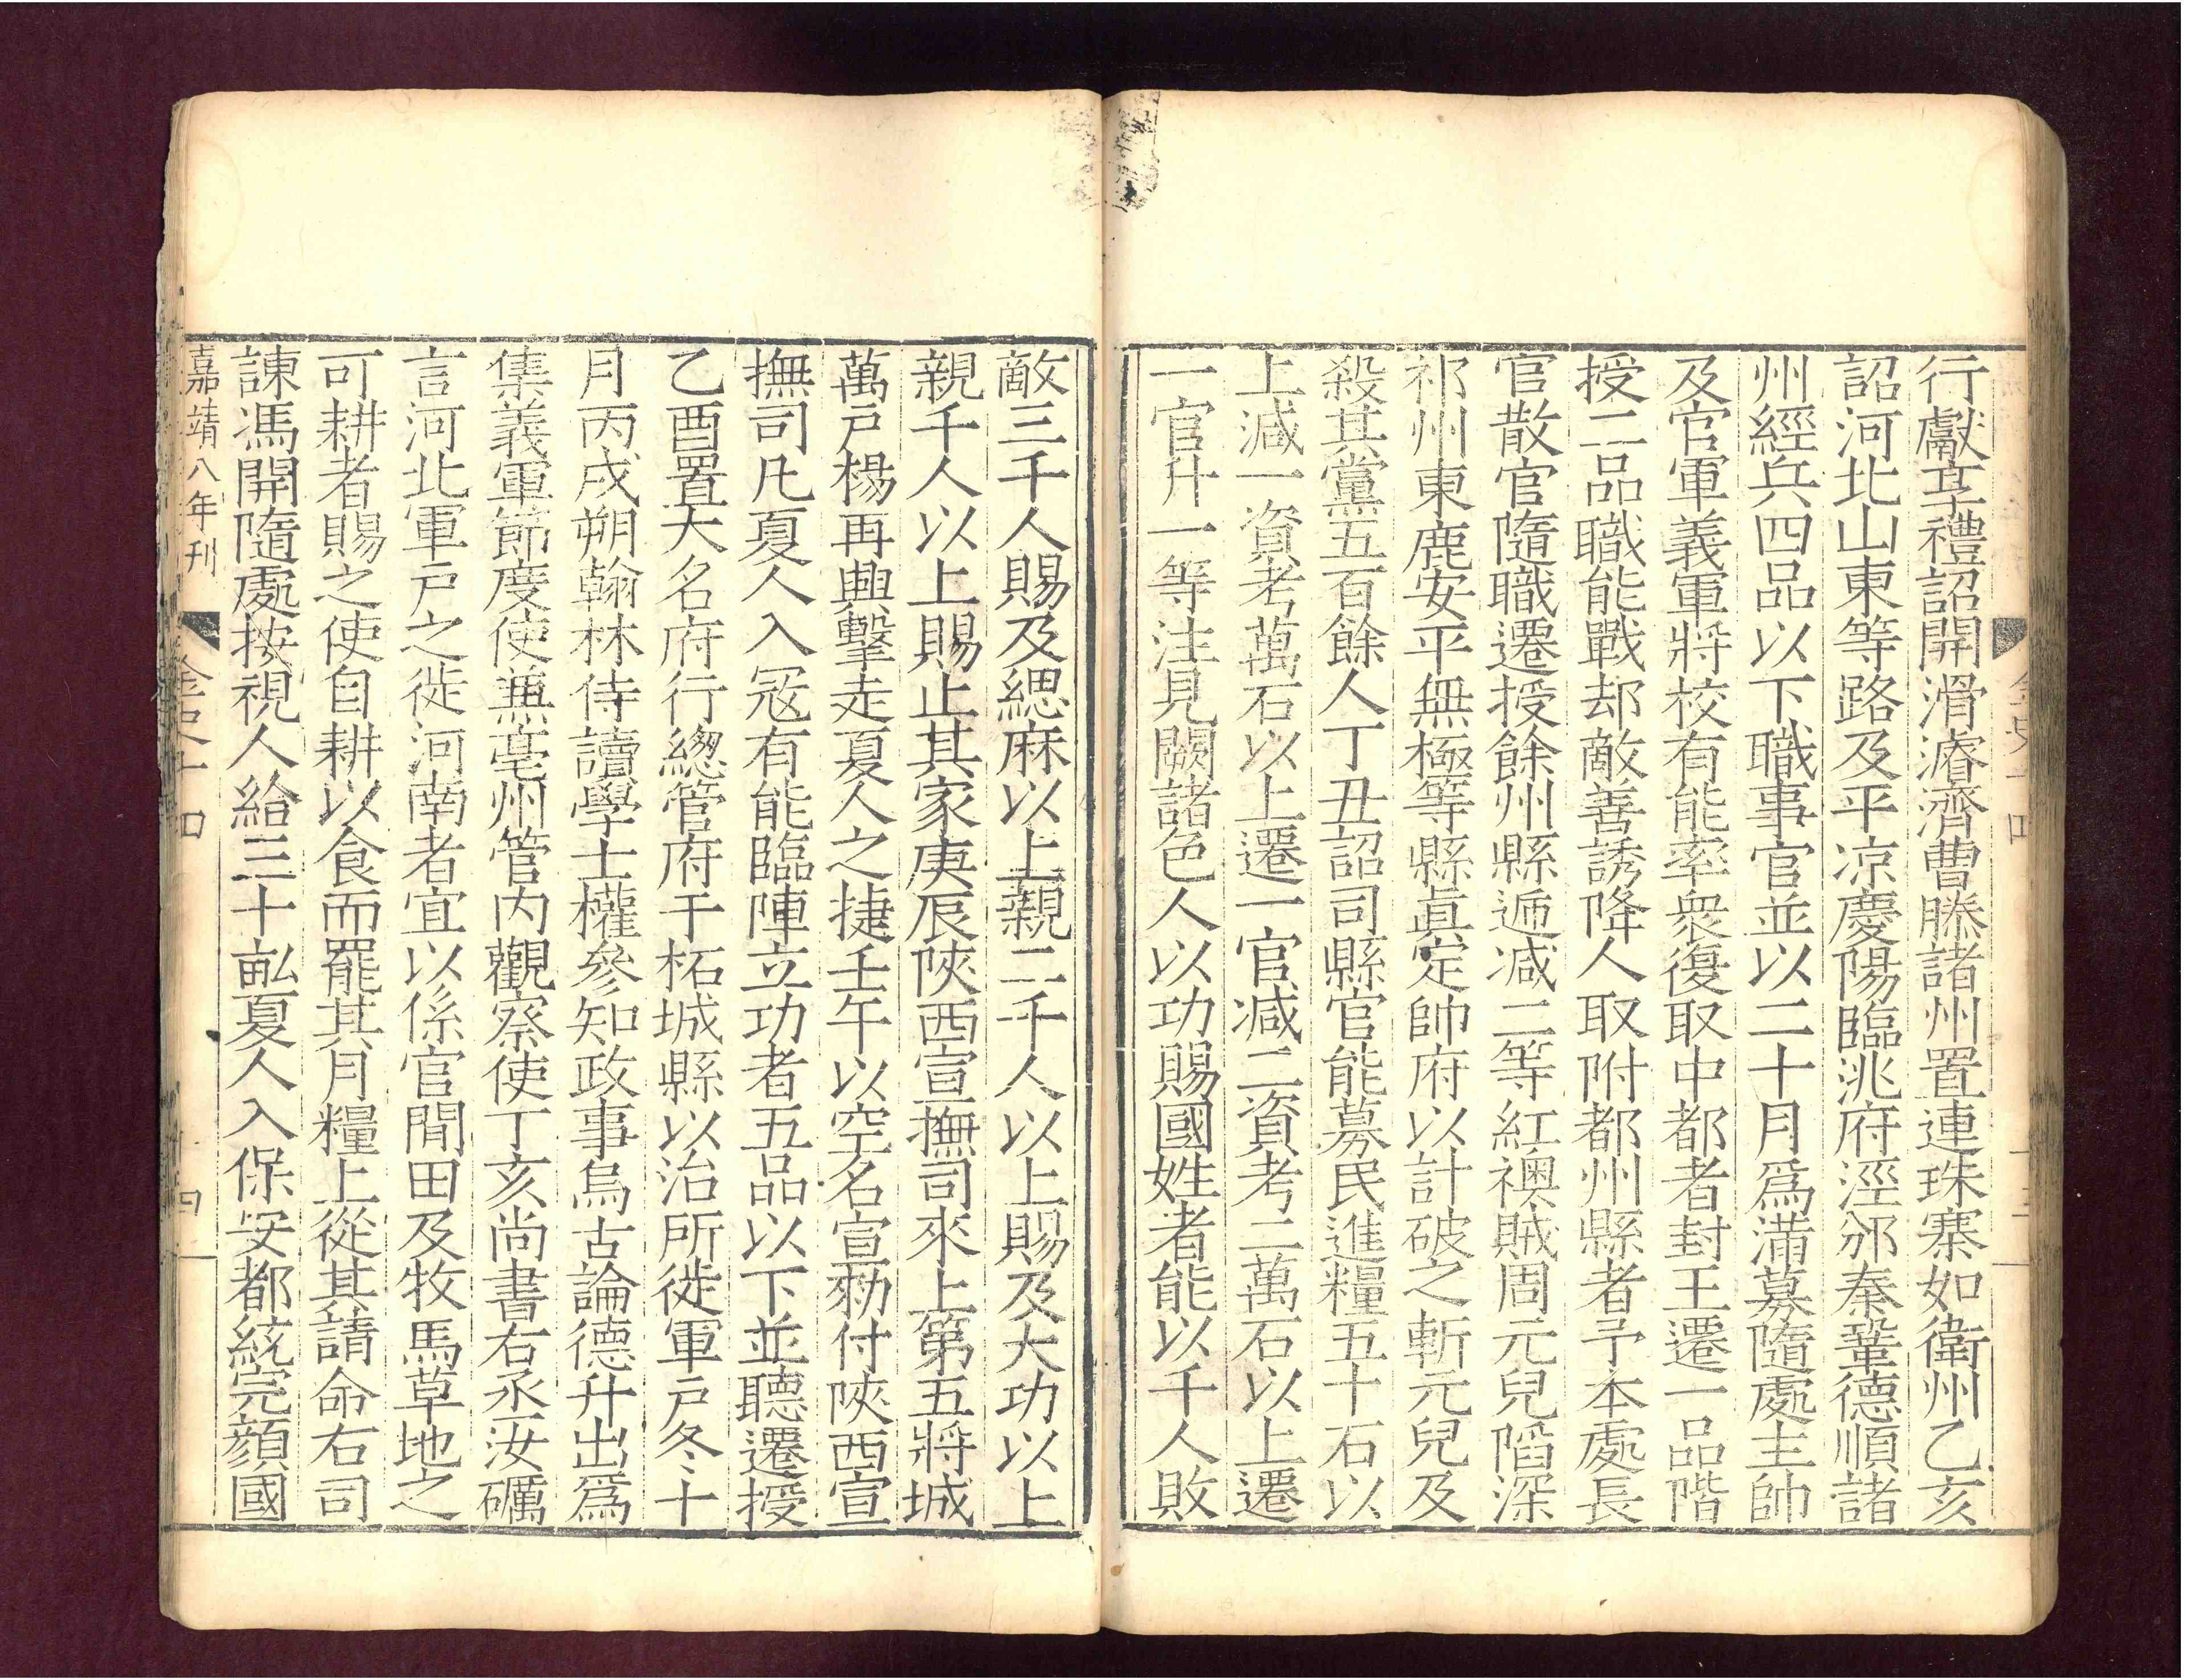 行獻享禮詔開滑濬濟曹滕諸州置連珠寨如衛州乙亥
詔河北山東等路及平凉慶陽臨洮府涇邠秦鞏德順諸
州經兵四品以下職事官並以二十月爲滿募隨處主帥
及官軍義軍將校有能率衆復取中都者封王遷一品階
授二品職能戰却敵善誘降人取附都州縣者予本處長
官散官隨職遷授餘州縣遞减二等紅襖賊周元兒陷深
祁州東鹿安平無極等縣眞定帥府以計破之斬元兒及
殺其黨五百餘人丁丑詔司縣官能募民進糧五十石以
上减一資考萬石以上遷一官减二資考二萬石以上遷
一官升一等注見闕諸色人以功賜國姓者能以千人敗
敵三千人賜及緦麻以上親二千人以上賜及大功以上
親千人以上賜止其家庚辰陝西宣撫司來上第五將城
萬戶楊再興擊走夏人之捷壬午以空名宣勑付陝西宣
撫司凡夏人入冦有能臨陣立功者五品以下並聽遷授
乙酉置大名府行總管府于柘城縣以治所徙軍戶冬十
月丙戌朔翰林侍讀學士權參知政事烏古論德升出爲
集義軍節度使兼亳州管内觀察使丁亥尚書右丞汝礪
言河北軍戶之徙河南者宜以係官閒田及牧馬草地之
可耕者賜之使自耕以食而罷其月糧上從其請命右司
諫馮開隨處按視人給三十畝夏人入保安都統完顏國
嘉靖八年刊
金史十四
十四